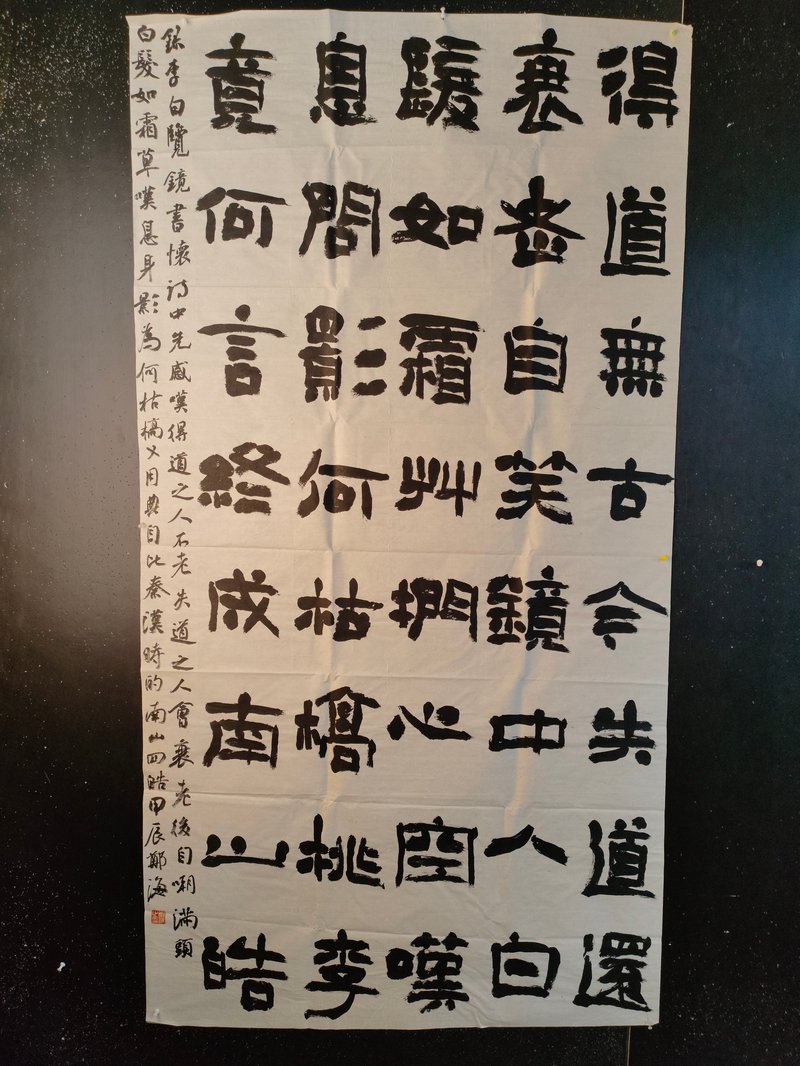 得道無古今失道還
衰老自笑鏡中人白
髮如霜艸捫心空嘆
息問影何枯槁桃李
竟何言終成南山皓
録李白覽鏡書懷詩中先感嘆得道之人不老失道之人會衰老後自嘲滿頭
白髮如霜草嘆息身影為何枯槁又用典自比秦漢時的南山四皓甲辰鄭海